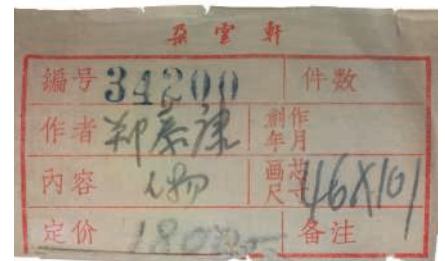 朶雲軒
編号 34200 件数
作者 郑 康 創作年月
内容 人物 画芯尺寸 46X101
定价 180 备注